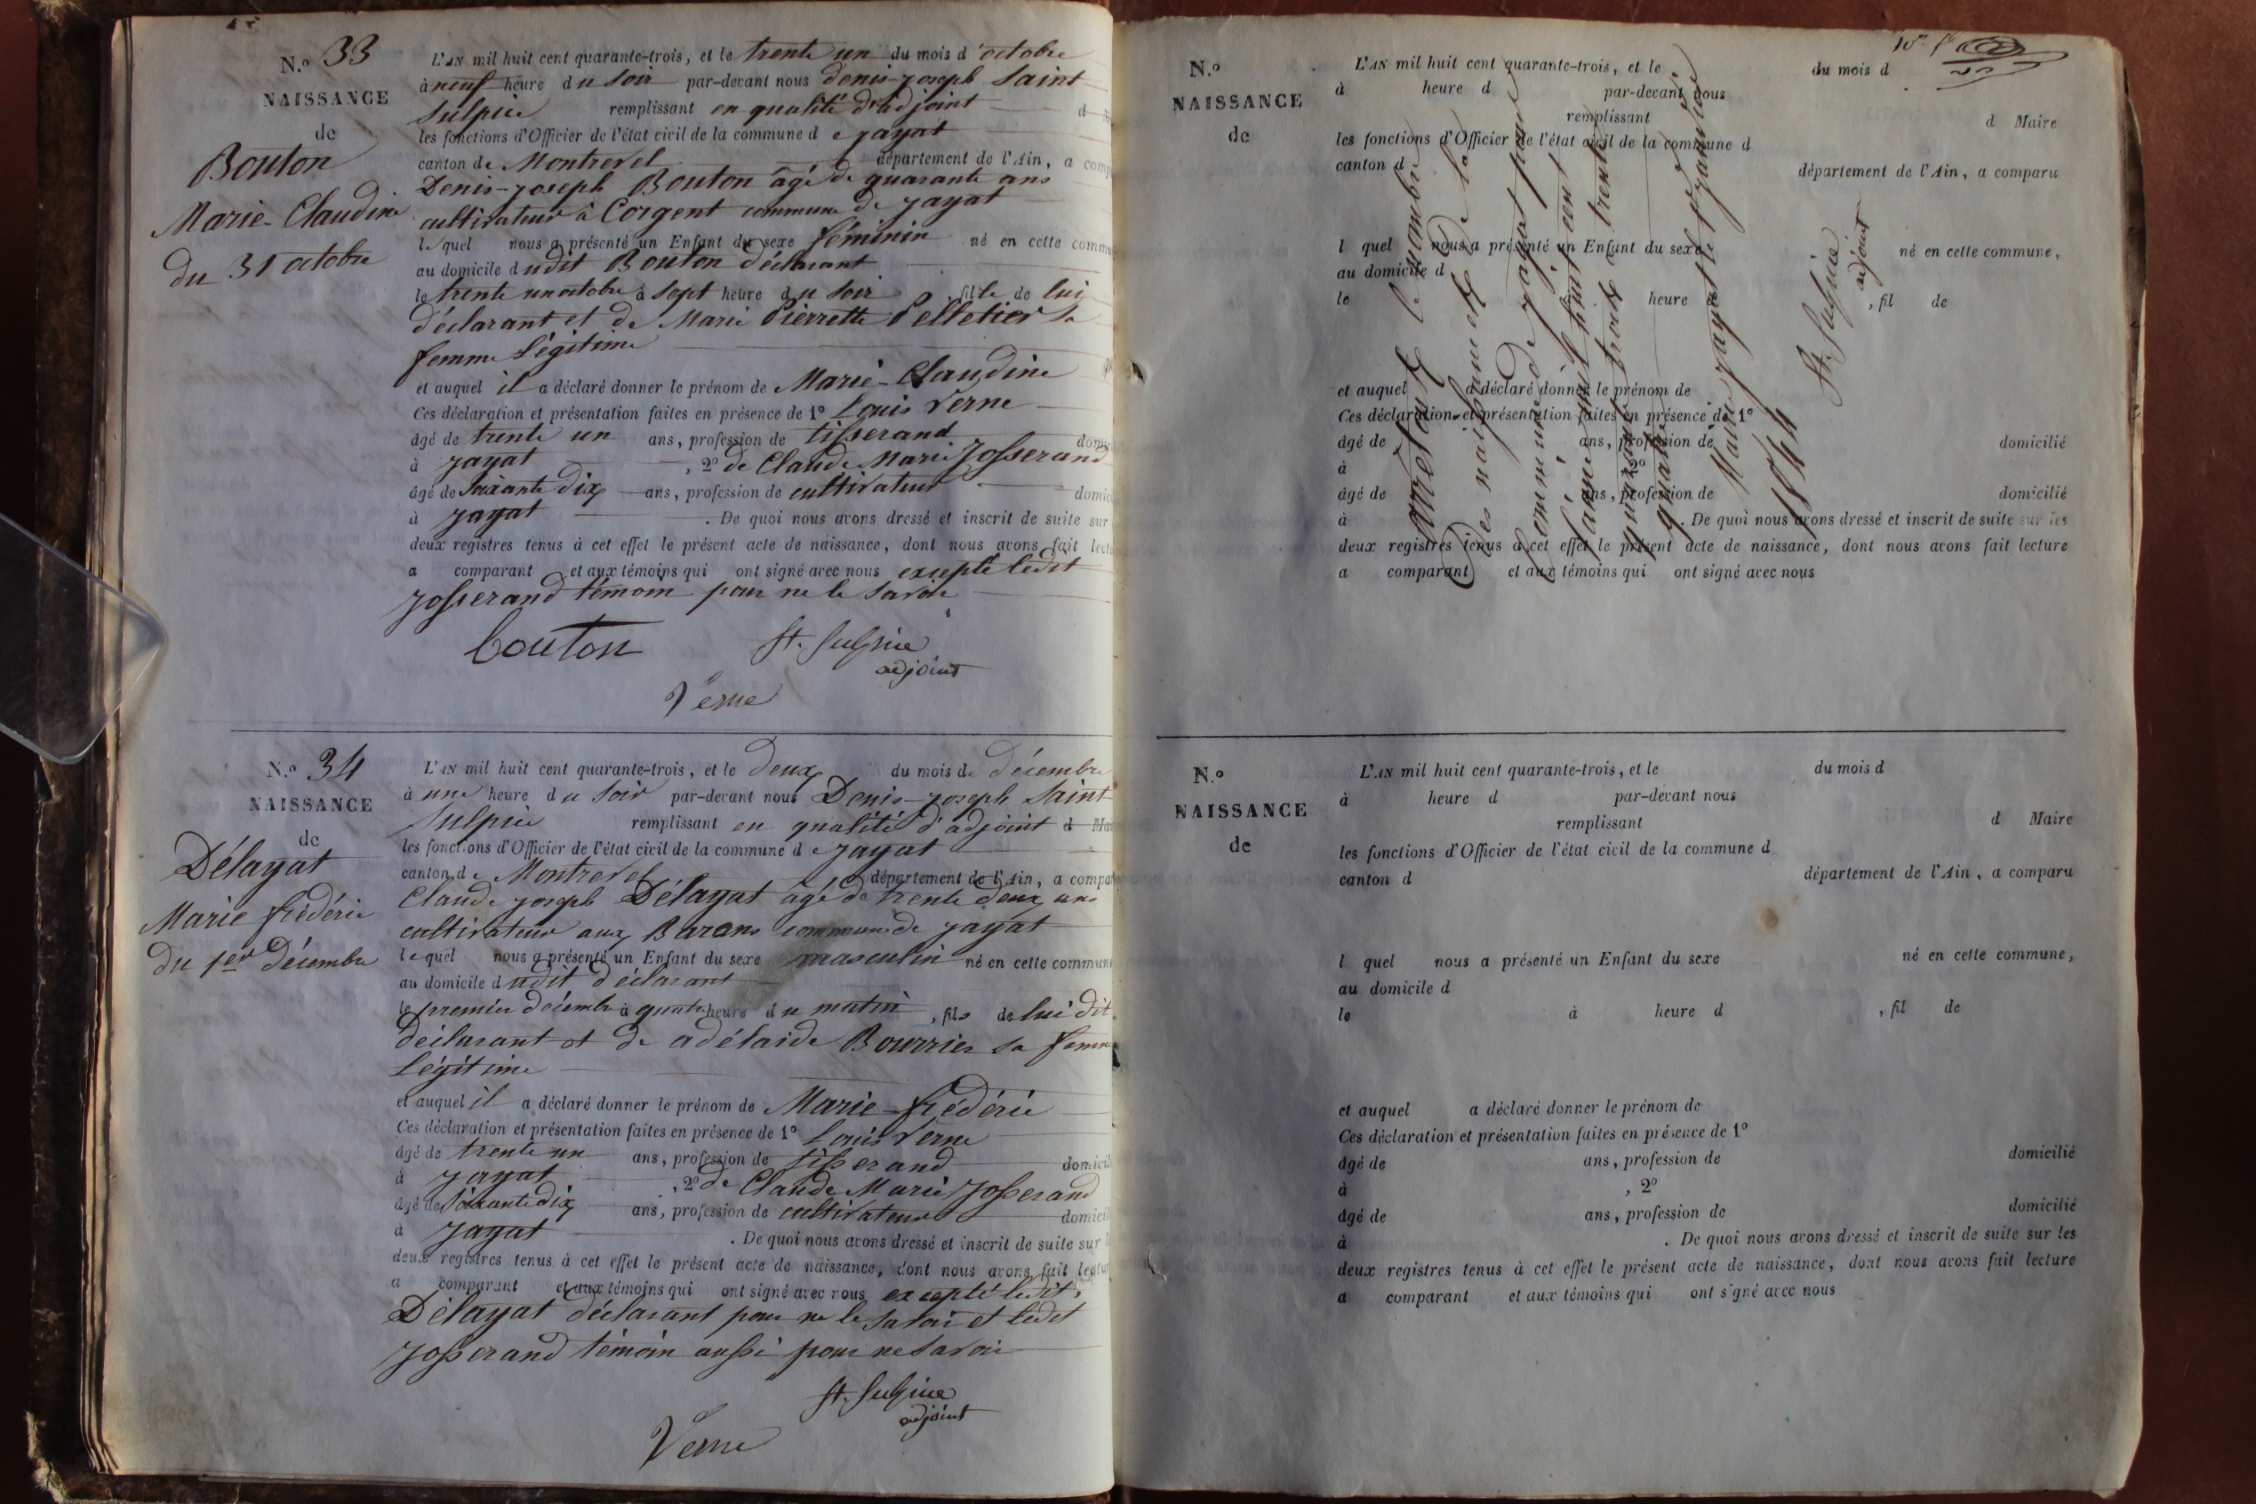 N.º 33
NAISSANCE
de
Bouton
Marie-Claudine
du 31 octobre
L'AN mil huit cent quarante-trois, et le trente un du mois d'octobre
à neuf heure du soir par-devant nous Denis-joseph Saint
Sulpice remplissant en qualité d'adjoint d
les fonctions d'Officier de l'état civil de la commune de jayat
canton de Montrevel département de l'Ain, a comp
Denis-joseph Bouton âgé de quarante ans
cultivateur à Corgent commune de jayat
lequel nous a présenté un Enfant du sexe féminin né en cette commu
au domicile dudit Bouton déclarant
le trente un octobre à sept heure du soir, fille de lui
déclarant et de Marie Pierrette Pelletier sa
femme légitime
et auquel il a déclaré donner le prénom de Marie-Claudine
Ces déclaration et présentation faites en présence de 1º Louis Verne
âgé de trente un ans, profession de tisserand domi
à jayat, 2º de Claude Marie Josserand
âgé de soixante dix ans, profession de cultivateur domic
à jayat. De quoi nous avons dressé et inscrit de suite sur
deux registres tenus à cet effet le présent acte de naissance, dont nous avons fait lectu
a comparant et aux témoins qui ont signé avec nous excepté ledit
Josserand témoin pour ne le savoir
Bouton St. Sulpice
adjoint
Verne
N.º 34
NAISSANCE
de
Délayat
Marie frédéric
du 1er décembre
L'AN mil huit cent quarante-trois, et le deux du mois de décembre
à une heure du soir par-devant nous Denis-joseph Saint
Sulpice remplissant en qualité d'adjoint d Ma
les fonctions d'Officier de l'état civil de la commune de jayat
canton de Montrevel département de l'Ain, a compa
Claude joseph Délayat âgé de trente deux ans
cultivateur aux Barans commune de jayat
lequel nous a présenté un Enfant du sexe masculin né en cette commun
au domicile dudit déclarant
le premier décembre à quatre heure du matin, fils de lui dit
déclarant et de adélaide Bourrier sa femme
légitime
et auquel il a déclaré donner le prénom de Marie-frédéric
Ces déclaration et présentation faites en présence de 1º Louis Verne
âgé de trente un ans, profession de tisserand domicil
à jayat, 2º de Claude Marie Josserand
âgé de soixante dix ans, profession de cultivateur domicil
à jayat. De quoi nous avons dressé et inscrit de suite sur
deux registres tenus à cet effet le présent acte de naissance, dont nous avons fait lectur
a comparant et aux témoins qui ont signé avec nous excepté ledit
Délayat déclarant pour ne le savoir et ledit
Josserand témoin aussi pour ne savoir
St. Sulpice
adjoint
Verne
N.º
NAISSANCE
de
L'AN mil huit cent quarante-trois, et le du mois d
à heure d par-devant nous
remplissant d Maire
les fonctions d'Officier de l'état civil de la commune d
canton d département de l'Ain, a comparu
l quel nous a présenté un Enfant du sexe né en cette commune,
au domicile d
le heure , fil de
et auquel a déclaré donner le prénom de
Ces déclaration et présentation faites en présence de 1º
âgé de ans, profession de domicilié
à 2º
âgé de ans, profession de domicilié
à . De quoi nous avons dressé et inscrit de suite sur les
deux registres tenus à cet effet le présent acte de naissance, dont nous avons fait lecture
a comparant et aux témoins qui ont signé avec nous
Arreté le nombre
des naissances de la
Commune de jayat pour
l'année mil huit cent
quarante trois à trente
quatre
Mairie jayat le 1er janvier
1844
St. Sulpice
adjoint
N.º
NAISSANCE
de
L'AN mil huit cent quarante-trois, et le du mois d
à heure d par-devant nous
remplissant d Maire
les fonctions d'Officier de l'état civil de la commune d
canton d département de l'Ain, a comparu
l quel nous a présenté un Enfant du sexe né en cette commune,
au domicile d
le à heure d , fil de
et auquel a déclaré donner le prénom de
Ces déclaration et présentation faites en présence de 1º
âgé de ans, profession de domicilié
à , 2º
âgé de ans, profession de domicilié
à . De quoi nous avons dressé et inscrit de suite sur les
deux registres tenus à cet effet le présent acte de naissance, dont nous avons fait lecture
a comparant et aux témoins qui ont signé avec nous